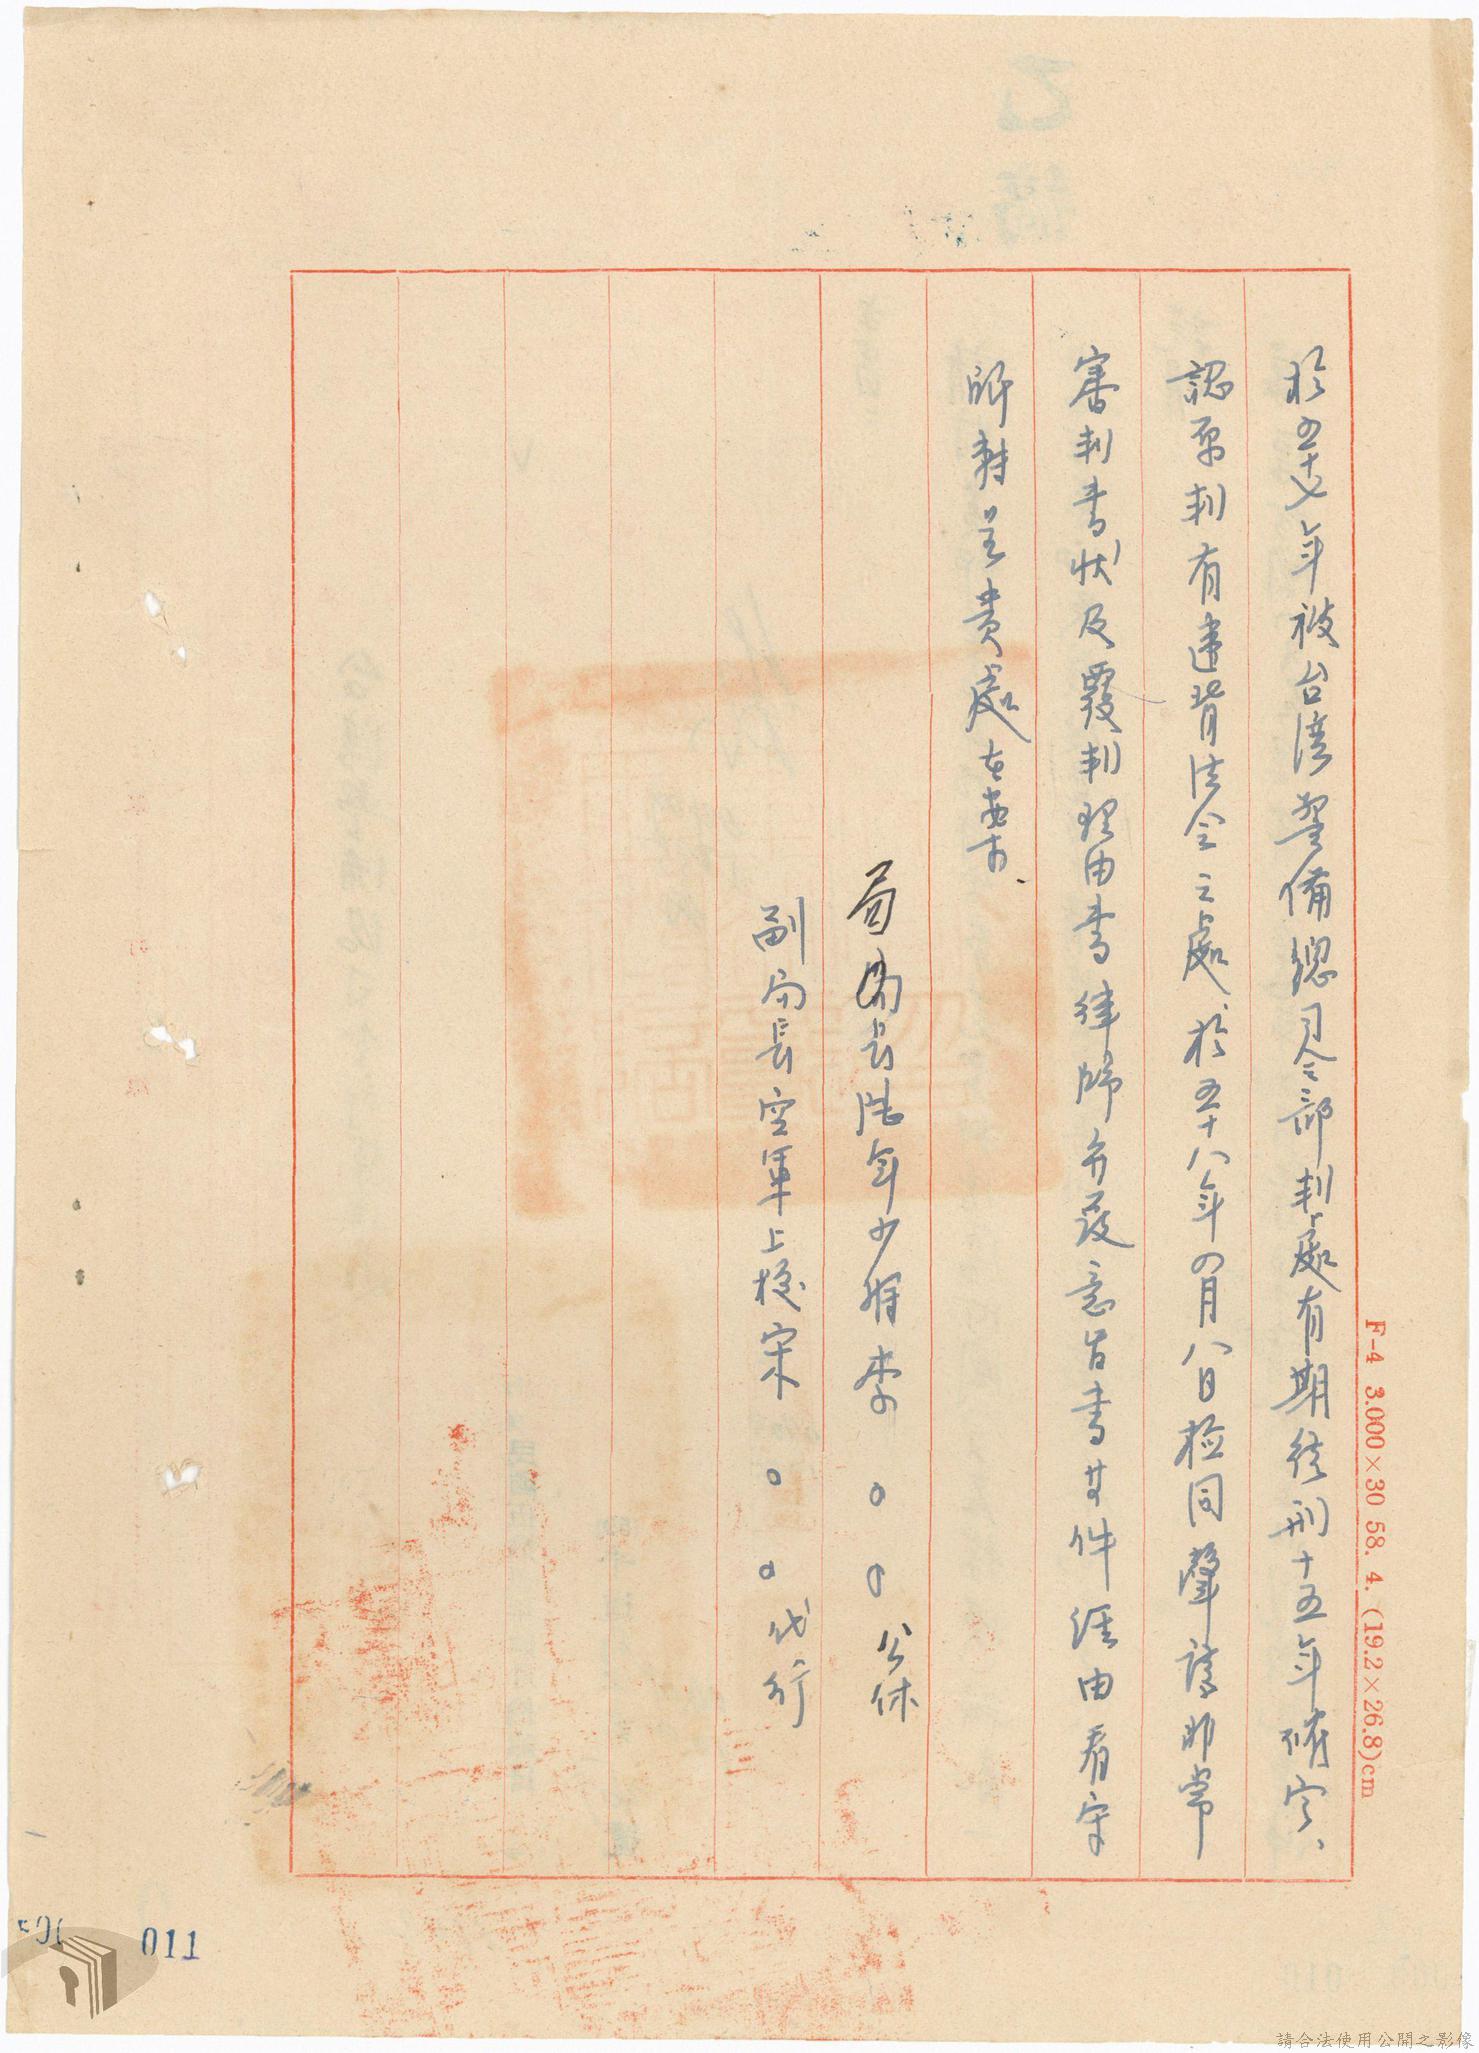 於五十七年被台湾警備總司令部判處有期徒刑十五年确定、
認原判有違背法令之處、於五十八年四月八日檢同聲請非常
審判書狀及覆判理由書律師辯護意旨書廿件經由看守
所轉呈貴處在案.
局長陸軍少將李○○公休
副局長空軍上校宋○○代行
F-4 3.000×30 58. 4. (19.2×26.8)cm
011
請合法使用公開之影像